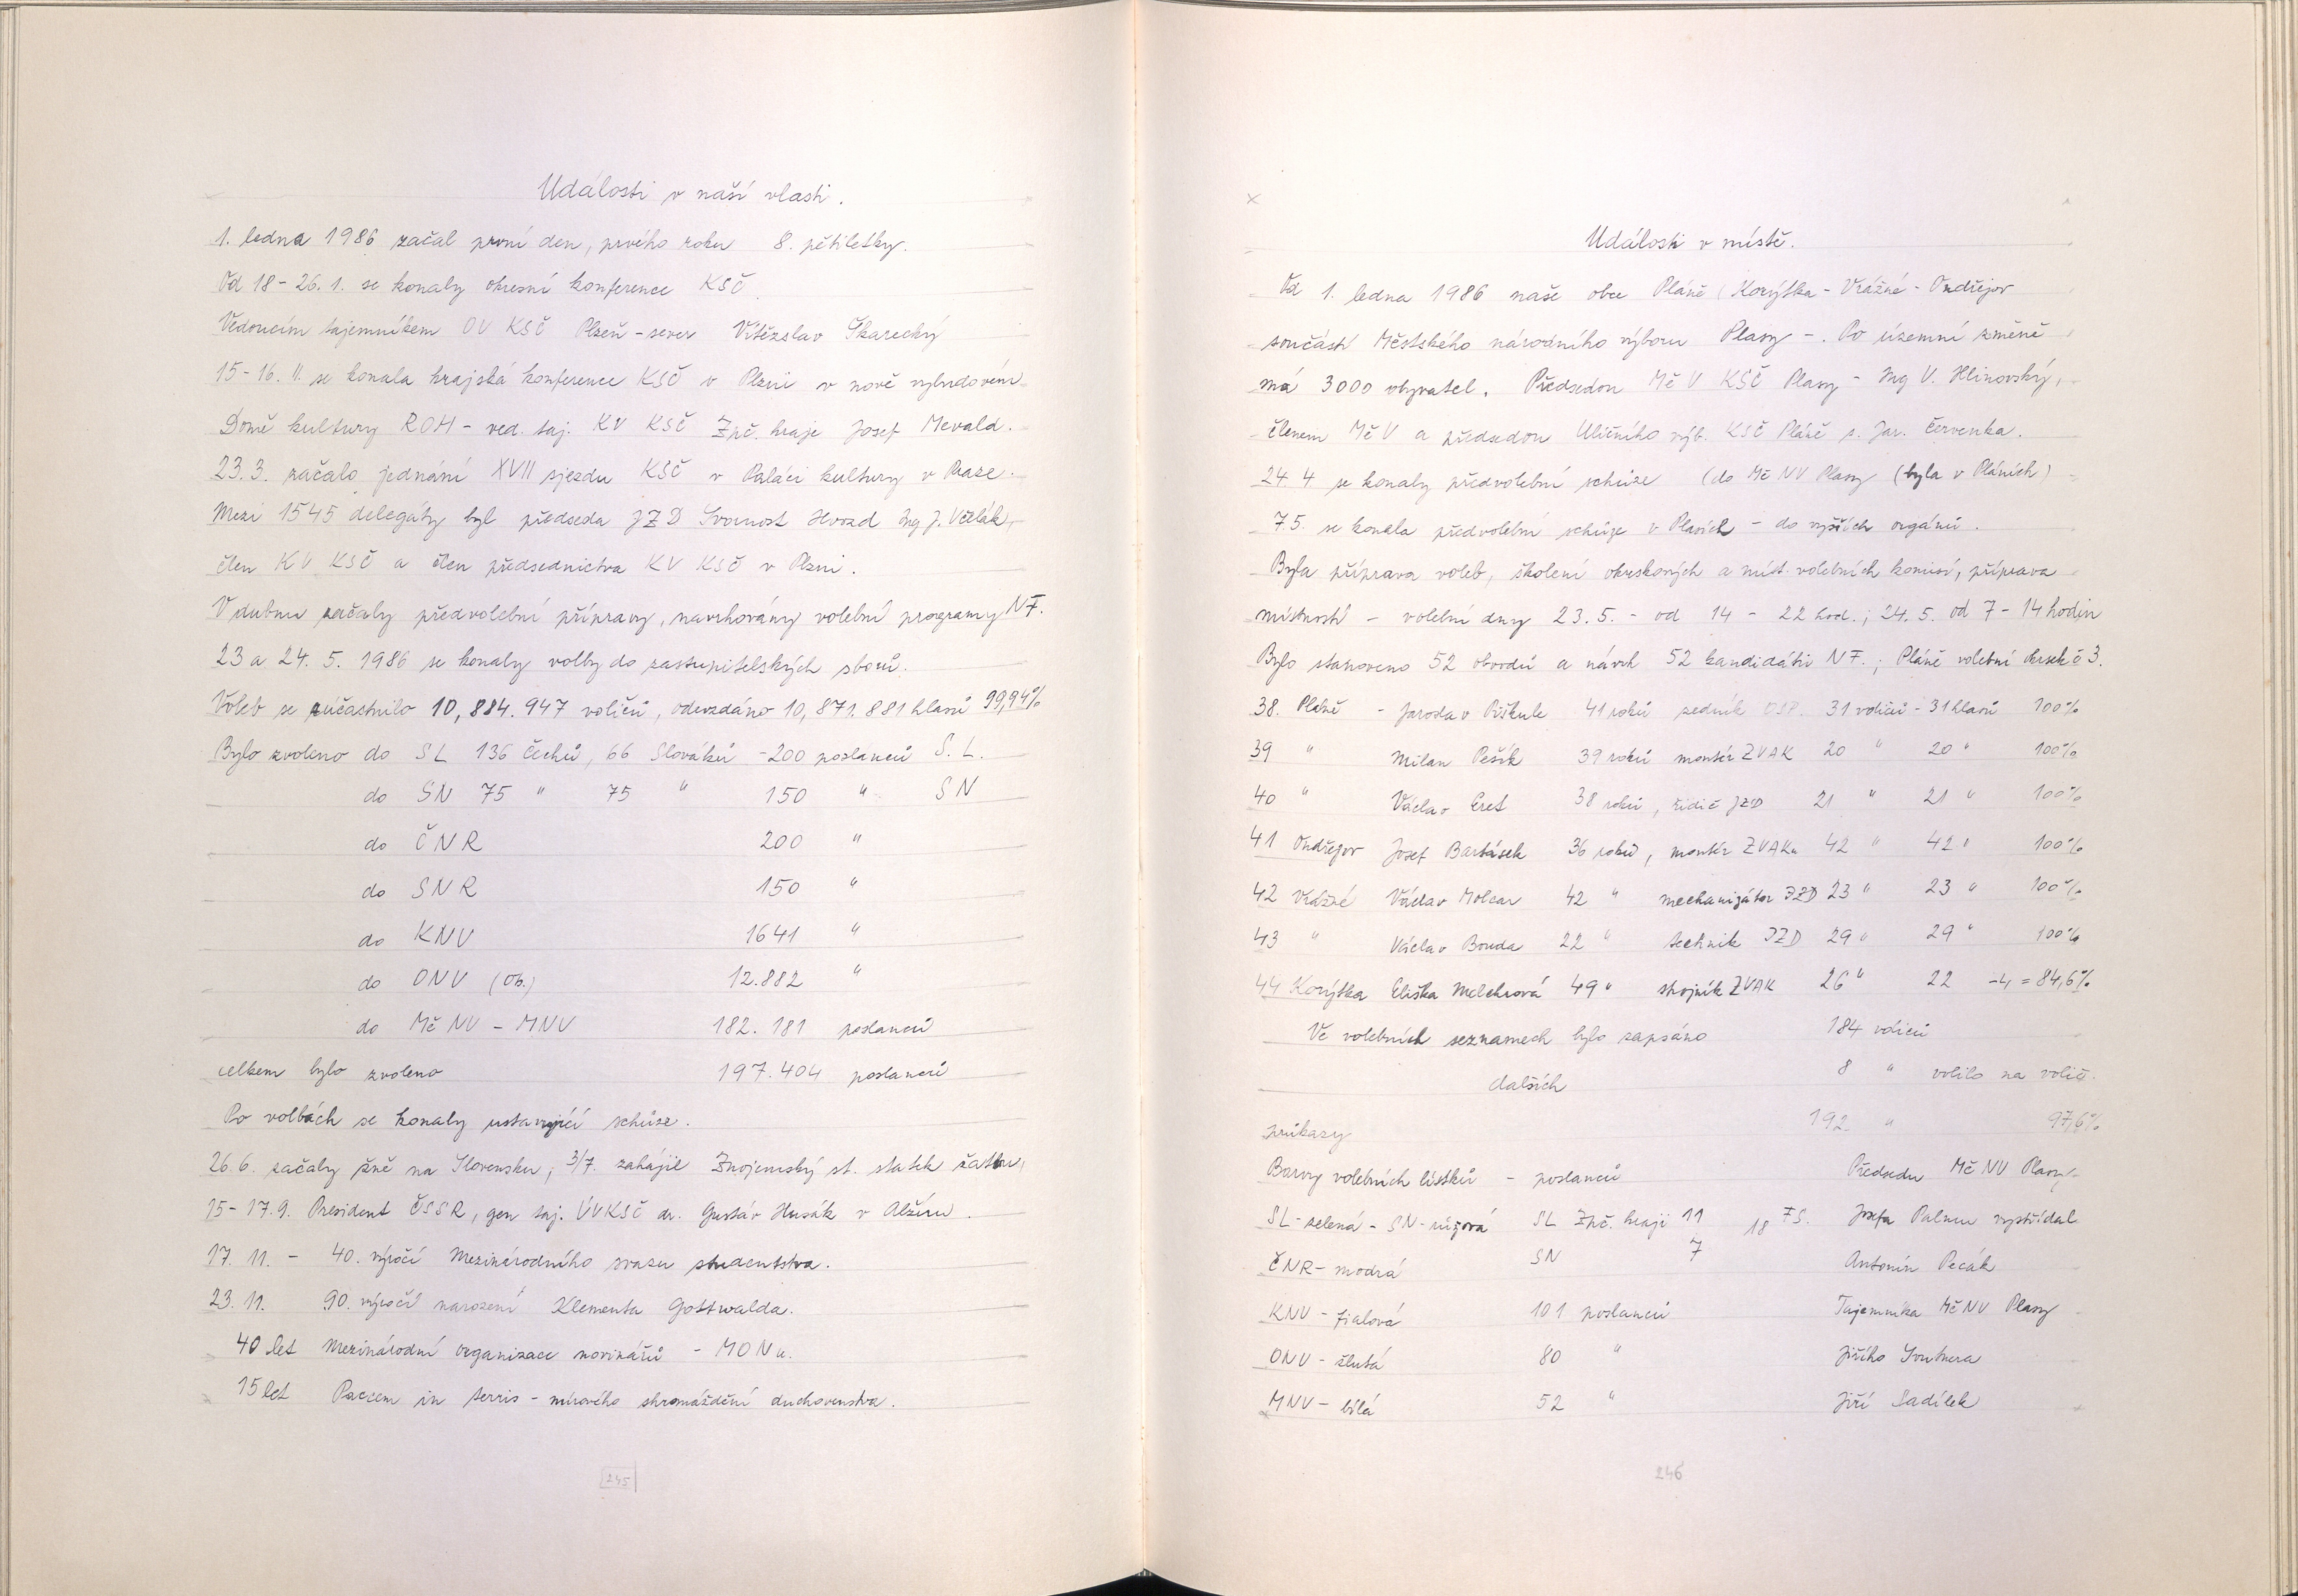 Události v naší vlasti.
1. ledna 1986 začal první den, prvého roku 8. pětiletky.
Od 18-26. 1. se konaly okresní konference KSČ.
Vedoucím tajemníkem OV KSČ Plzeň-sever Vítězslav Škarecký
15-16. II. se konala krajská konference KSČ v Plzni v nově vybudovém
Domě kultury ROH - ved. taj. KV KSČ Zpč. kraje Josef Mevald.
23.3. začalo jednání XVII sjezdu KSČ v Paláci kultury v Praze.
Mezi 1545 delegáty byl předseda JZD Svornost Hvozd Ing J. Včelák,
člen KV KSČ a člen předsednictva KV KSČ v Plzni.
V dubnu začaly předvolební přípravy, navrhovány volební programy NF.
23 a 24. 5. 1986 se konaly volby do zastupitelských sborů.
Voleb se zúčastnilo 10,884.947 voličů, odevzdáno 10,871.881 hlasů 99,94%
Bylo zvoleno do SL 136 Čechů, 66 Slováků -200 poslanců S.L.
do SN 75 " 75 " 150 " SN
do ČNR 200 "
do SNR 150 "
do KNV 1641 "
do ONV (Ob.) 12.882 "
do MěNV - MNV 182.181 poslanců
celkem bylo zvoleno 197.404 poslanců
Po volbách se konaly ustavující schůze.
26.6. začaly žně na Slovensku, 3/7. zahájil Znojemský st. statek žatvu,
15-17.9. President ČSSR, gen taj. ÚVKSČ dr. Gustáv Husák v Alžíru.
17. 11. - 40. výročí Mezinárodního svazu studentstva.
23. 11. 90. výročí narození Klementa Gottwalda.
40 let Mezinárodní organizace novinářů - MONu.
15 let Paccem in terris - mírového shromáždění duchovenstva.
245
Události v místě.
Od 1. ledna 1986 naše obce Pláně (Korýtka - Vrážné - Ondřejov
součástí Městského národního výboru Plasy -. Po územní změně
má 3000 obyvatel. Předsedou MěV KSČ Plasy - Ing V. Hlinovský,
členem MěV a předsedou Uličního výb. KSČ Pláně s. Jar. Červenka.
24. 4 se konaly předvolební schůze (do MěNV Plasy (byla v Pláních)
7.5. se konala předvolební schůze v Plasích - do vyšších orgánů.
Byla příprava voleb, školení okrskových a míst. volebních komisí, příprava
místností - volební dny 23.5. - od 14 - 22 hod.; 24.5. od 7-14 hodin
Bylo stanoveno 52 obvodů a návrh 52 kandidátů NF.; Pláně volební okrsek č 3.
38. Pláně - Jaroslav Piškule 41 roků zedník OSP. 31 voličů - 31 hlasů 100%
39 " Milan Pešík 39 roků montér ZVAK 20 " 20 " 100%
40 " Václav Eret 38 roků, řidič JZD 21 " 21 " 100%
41 Ondřejov Josef Bartásek 36 roků, montér ZVAKu 42 " 42 " 100%
42 Vrážné Václav Molcar 42 " mechanizátor JZD 23 " 23 " 100%
43 " Václav Bouda 22 " technik JZD 29 " 29 " 100%
44 Korýtka Eliška Melchrová 49 " strojník ZVAK 26 " 22 -4 = 84,6%
Ve volebních seznamech bylo zapsáno 184 voličů
dalších 8 " volilo na volič.
průkazy 192 " 97,6%
Barvy volebních lístků - poslanců Předsedu MěNV Plasy-
SL-zelená - SN-růžová SL Zpč. kraji 11 18 FS. Josefa Palmu vystřídal
ČNR - modrá SN 7 Antonín Pecák
KNV - fialová 101 poslanců Tajemníka MěNV Plasy
ONV - žlutá 80 " Jiřího
MNV - bílá 52 " Jiří Sadílek
246